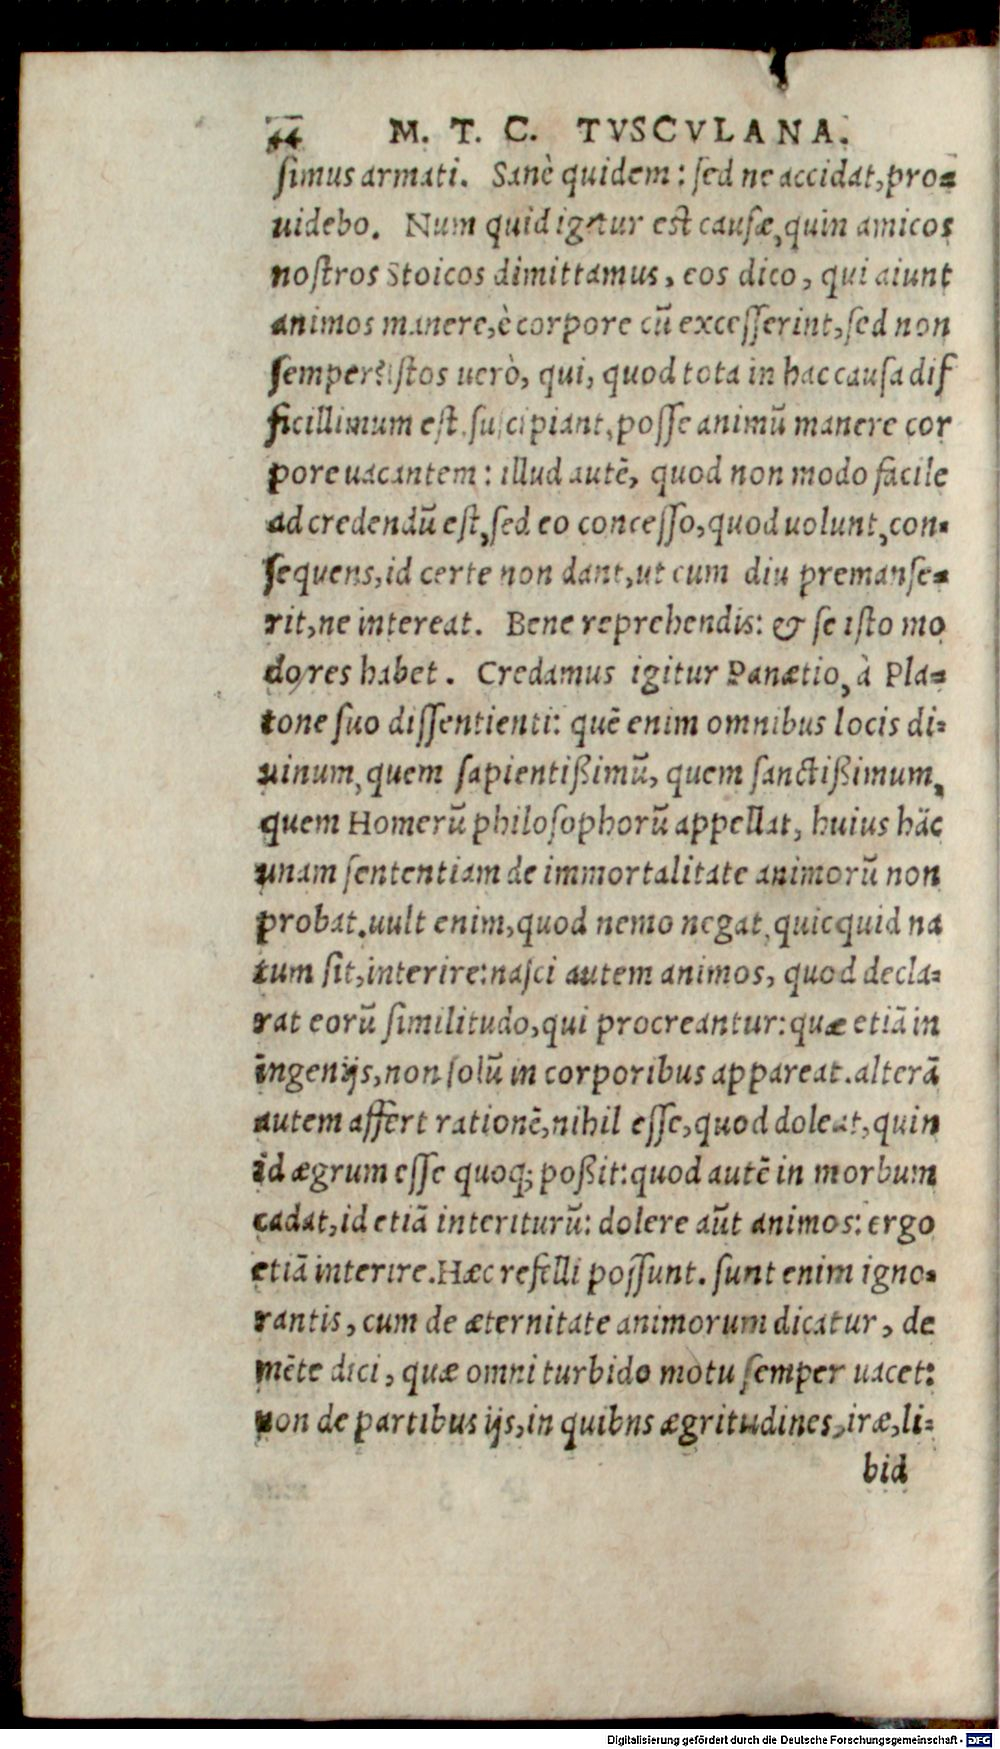 44 M. T. C. TVSCVLANA.
simus armati. Sanè quidem: sed ne accidat, pro-
uidebo. Num quid igitur est causæ, quin amicos
nostros Stoicos dimittamus, eos dico, qui aiunt
animos manere, è corpore cũ excesserint, sed non
semper? istos uerò, qui, quod tota in hac causa dif
ficillimum est, suscipiant, posse animũ manere cor
pore uacantem: illud autẽ, quod non modo facile
ad credendũ est, sed eo concesso, quod uolunt, con-
sequens, id certe non dant, ut cum diu premanse-
rit, ne intereat. Bene reprehendis: & se isto mo
do res habet. Credamus igitur Panætio, à Pla-
tone suo dissentienti: quẽ enim omnibus locis di-
uinum, quem sapientißimũ, quem sanctißimum,
quem Homerũ philosophorũ appellat, huius hãc
unam sententiam de immortalitate animorũ non
probat. uult enim, quod nemo negat, quicquid na
tum sit, interire: nasci autem animos, quod decla-
rat eorũ similitudo, qui procreantur: quæ etiã in
ingenijs, non solũ in corporibus appareat. alterã
autem affert rationẽ, nihil esse, quod doleat, quin
id ægrum esse quoq; poßit: quod autẽ in morbum
cadat, id etiã interiturũ: dolere aũt animos: ergo
etiã interire. Hæc refelli possunt. sunt enim igno-
rantis, cum de æternitate animorum dicatur, de
mẽte dici, quæ omni turbido motu semper uacet:
non de partibus ijs, in quibns ægritudines, iræ, li-
bid
Digitalisierung gefördert durch die Deutsche Forschungsgemeinschaft - DFG